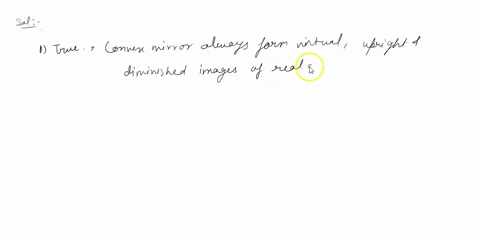 Sol:-
1) True → Convex mirror always form virtual, upright &
diminished images of real